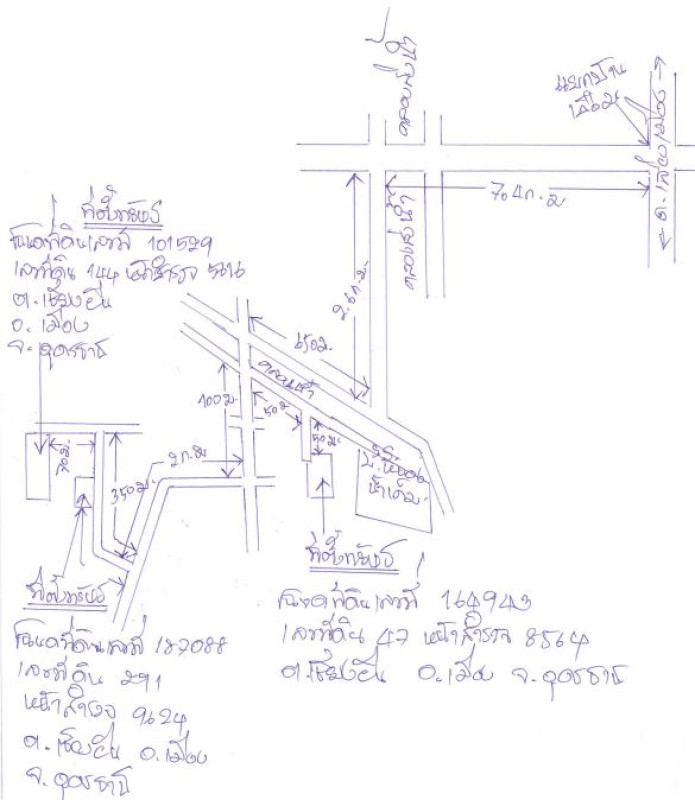 คลองส่งน้ำ
แยกบ้าน
เลื่อม
ถ.เลี่ยงเมือง
7.4 ก.ม
คลองส่งน้ำ
2.6 ก.ม.
ที่ตั้งทรัพย์
โฉนดที่ดินเลขที่ 101529
เลขที่ดิน 144 หน้าสำรวจ
ต.เชียงยืน
อ.เมือง
จ.อุดรธานี
650 ม.
คลองน้ำ
100 ม.
50 ม
50 ม.
ร.ร.
บ.หนอง
น้ำเค็ม
70 ม.
350 ม.
2 ก.ม
ที่ตั้งทรัพย์
โฉนดที่ดินเลขที่ 164943
เลขที่ดิน 47 หน้าสำรวจ 8564
ต.เชียงยืน อ.เมือง จ.อุดรธานี
ที่ตั้งทรัพย์
โฉนดที่ดินเลขที่ 187088
เลขที่ดิน 291
หน้าสำรวจ 9624
ต.เชียงยืน อ.เมือง
จ.อุดรธานี